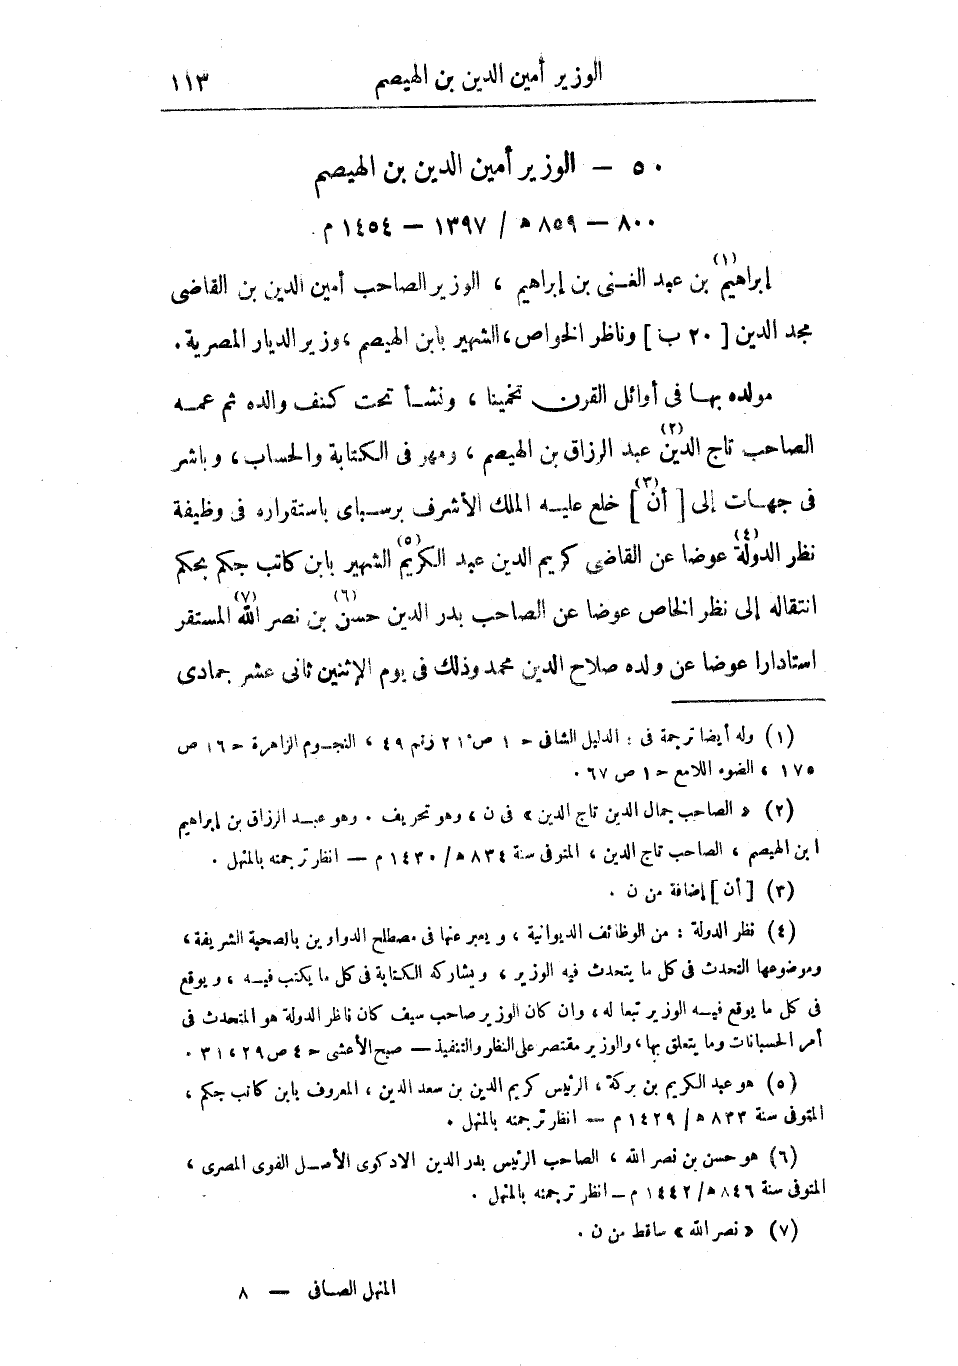 الوزير أمين الدين بن الهيصم ١١٣
٥٠ — الوزير أمين الدين بن الهيصم
٨٠٠ — ٨٥٩ ه / ١٣٩٧ — ١٤٥٤ م .
إبراهيم (١) بن عبد الغنى بن إبراهيم ، الوزير الصاحب أمين الدين بن القاضى
مجد الدين [ ٢٠ ب ] وناظر الخواص ، الشهير بابن الهيصم ، وزير الديار المصرية .
مولده بها فى أوائل القرن تخمينا ، ونشأ تحت كنف والده ثم عمه
الصاحب تاج الدين (٢) عبد الرزاق بن الهيصم ، ومهر فى الكتابة والحساب ، وباشر
فى جهات إلى [ أن (٣) ] خلع عليه الملك الأشرف برسباى باستقراره فى وظيفة
نظر الدولة (٤) عوضا عن القاضى كريم الدين عبد الكريم (٥) الشهير بابن كاتب جكم بحكم
انتقاله إلى نظر الخاص عوضا عن الصاحب بدر الدين حسن (٦) بن نصر الله (٧) المستقر
استادارا عوضا عن ولده صلاح الدين محمد وذلك فى يوم الإثنين ثانى عشر جمادى
(١) وله أيضا ترجمة فى : الدليل الشافى ح ١ ص ٢١ رقم ٤٩ ، النجوم الزاهرة ح ١٦ ص
١٧٥ ، الضوء اللامع ح ١ ص ٦٧ .
(٢) « الصاحب جمال الدين تاج الدين » فى ن ، وهو تحريف . وهو عبد الرزاق بن إبراهيم
ابن الهيصم ، الصاحب تاج الدين ، المتوفى سنة ٨٣٤ ه / ١٤٣٠ م — انظر ترجمته بالمنهل .
(٣) [ أن ] إضافة من ن .
(٤) نظر الدولة : من الوظائف الديوانية ، ويعبر عنها فى مصطلح الدواوين بالصحبة الشريفة ،
وموضوعها التحدث فى كل ما يتحدث فيه الوزير ، ويشاركه الكتابة فى كل ما يكتب فيه ، ويوقع
فى كل ما يوقع فيه الوزير تبعا له ، وان كان الوزير صاحب سيف كان ناظر الدولة هو المتحدث فى
أمر الحسبانات وما يتعلق بها ، والوزير مقتصر على النظار والتنفيذ — صبح الأعشى ح ٤ ص ٢٩ ، ٣١ .
(٥) هو عبد الكريم بن بركة ، الرئيس كريم الدين بن سعد الدين ، المعروف بابن كاتب جكم ،
المتوفى سنة ٨٣٣ ه / ١٤٢٩ م — انظر ترجمته بالمنهل .
(٦) هو حسن بن نصر الله ، الصاحب الرئيس بدر الدين الادكوى الأصل الفوى المصرى ،
المتوفى سنة ٨٤٦ ه / ١٤٤٢ م — انظر ترجمته بالمنهل .
(٧) « نصر الله » ساقط من ن .
المنهل الصافى — ٨